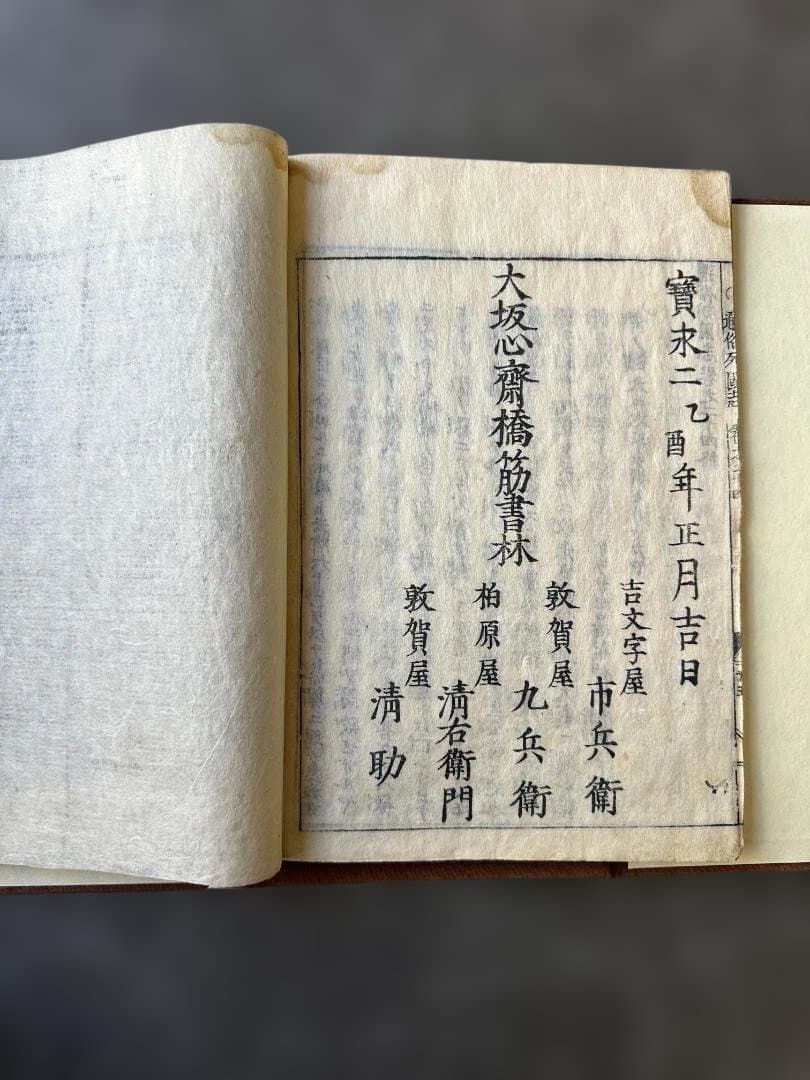 寶永二乙酉年正月吉日
大坂心齋橋筋書林
吉文字屋
市兵衛
敦賀屋
九兵衛
柏原屋
清右衛門
敦賀屋
清助